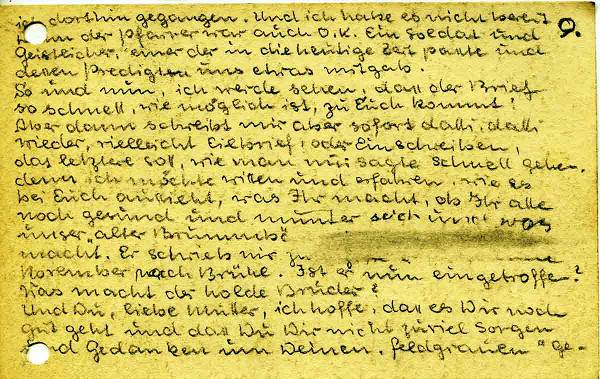 9.
ich dorthin gegangen. Und ich habe es nicht bereut
denn der Pfarrer war auch O.K. Ein Soldat und
Geistlicher, einer der in die heutige Zeit paßte und
dessen Predigten uns etwas mitgab.
So und nun, ich werde sehen, daß der Brief
so schnell, wie möglich ist, zu Euch kommt!
Aber dann schreibt mir aber sofort dalli, dalli
wieder, vielleicht Eilbrief oder Einschreiben,
das letztere soll, wie man mir sagte schnell gehen.
denn ich möchte wissen und erfahren, wie es
bei Euch aussieht, was Ihr macht, ob Ihr alle
noch gesund und munter seid und was
unser „alter
macht. Er schrieb mir zu
November nach Brühl. Ist er nun eingetroffen?
Was macht der holde Bruder?
Und Du, liebe Mutter, ich hoffe, daß es Dir noch
gut geht und daß Du Dir nicht zuviel Sorgen
und Gedanken um Deinen „feldgrauen“ ge-